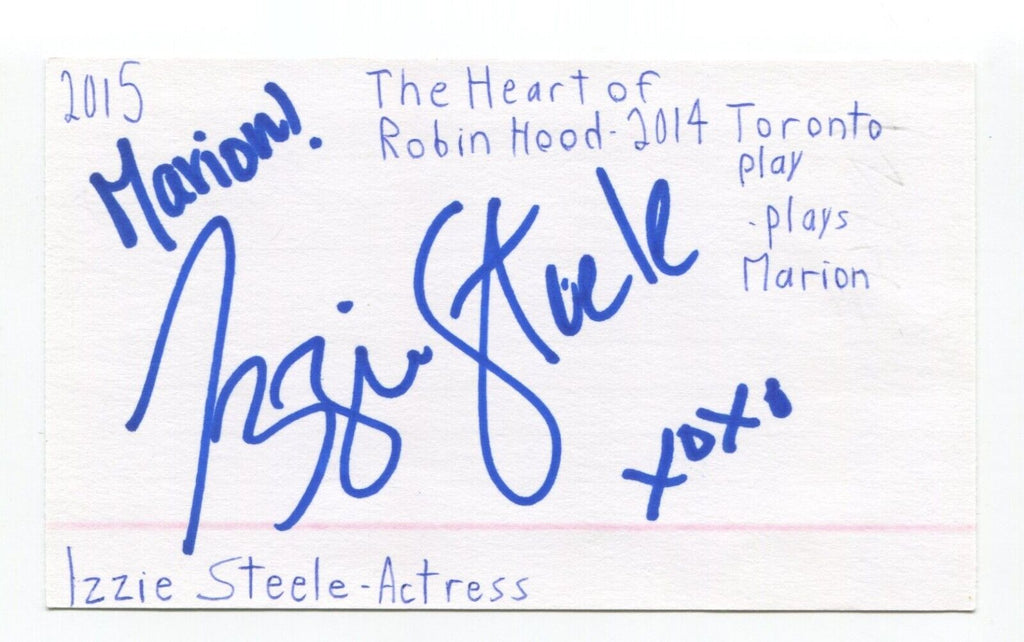 2015
The Heart of
Robin Hood-2014 Toronto
play
-plays
Marion
Marion!
Izzie Steele
xoxo
Izzie Steele-Actress